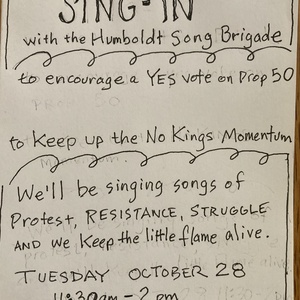 SING-IN
with the Humboldt Song Brigade
to encourage a YES vote on Prop 50
to Keep up the No Kings Momentum
We'll be singing songs of
Protest, RESISTANCE, STRUGGLE
AND we Keep the little flame alive.
TUESDAY OCTOBER 28
11:30am - 2 pm